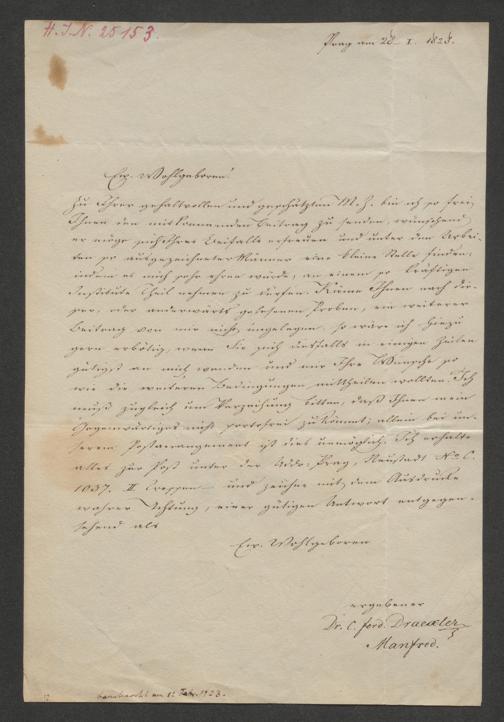 H.I.N. 25153.
Prag am 28 I. 1828.
Ew. Wohlgeboren!
Zu Ihrer gehaltvollen und geschätzten M.Z. bin ich so frei,
Ihnen den mitkommenden Beitrag zu senden, wünschend
er möge sich Ihres Beifalls erfreuen und unter den Arbei-
ten so ausgezeichneter Männer eine kleine Stelle finden,
indem es mich sehr ehren würde, an einem so kräftigen
Institute Theil nehmen zu dürfen. Käme Ihnen nach die-
ser, oder anderwärts gelesenen Proben, ein weiterer
Beitrag von mir nicht ungelegen, so wäre ich hiezu
gern erbötig, wenn Sie sich desfalls in einigen Zeilen
gütigst an mich wenden und mir Ihre Wünsche so
wie die weiteren Bedingungen mittheilen wollten. Ich
muß zugleich um Verzeihung bitten, daß Ihnen mein
Gegenwärtiges nicht portofrei zukömmt; allein bei un-
serem Postarrangement ist dies unmöglich. Ich erhalte
alles zur Post unter der Addr: Prag, Neustadt No C.
1037. II Treppen und zeichne mit dem Ausdrucke
wahrer Achtung, einer gütigen Antwort entgegen-
sehend als
Ew. Wohlgeboren
ergebener
Dr. C. ferd. Draexler
Manfred.
am 12 Febr. 1828.